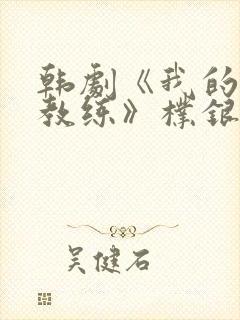 韩劇《我的
教练》樸銀
吴健石